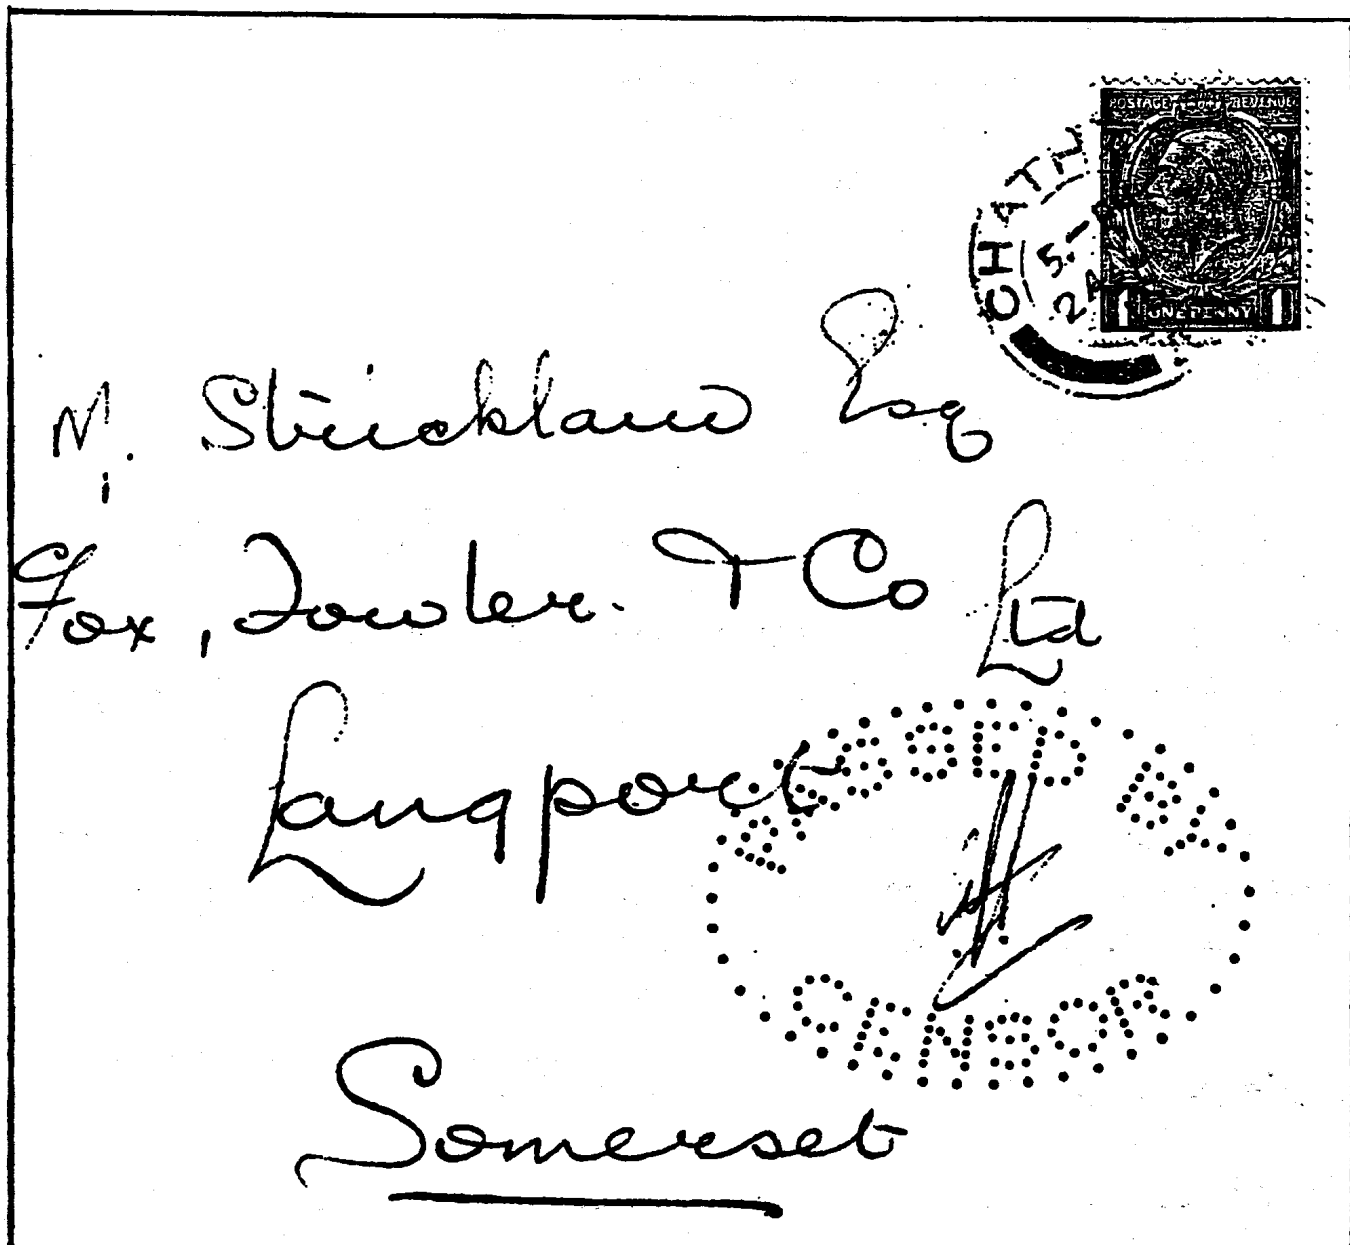 POSTAGE REVENUE
CHATH
5.-
24
1 ONE PENNY 1
M. Strickland Esq
Fox, Fowler. & Co Ltd
Langport
Somerset
PASSED BY
CENSOR